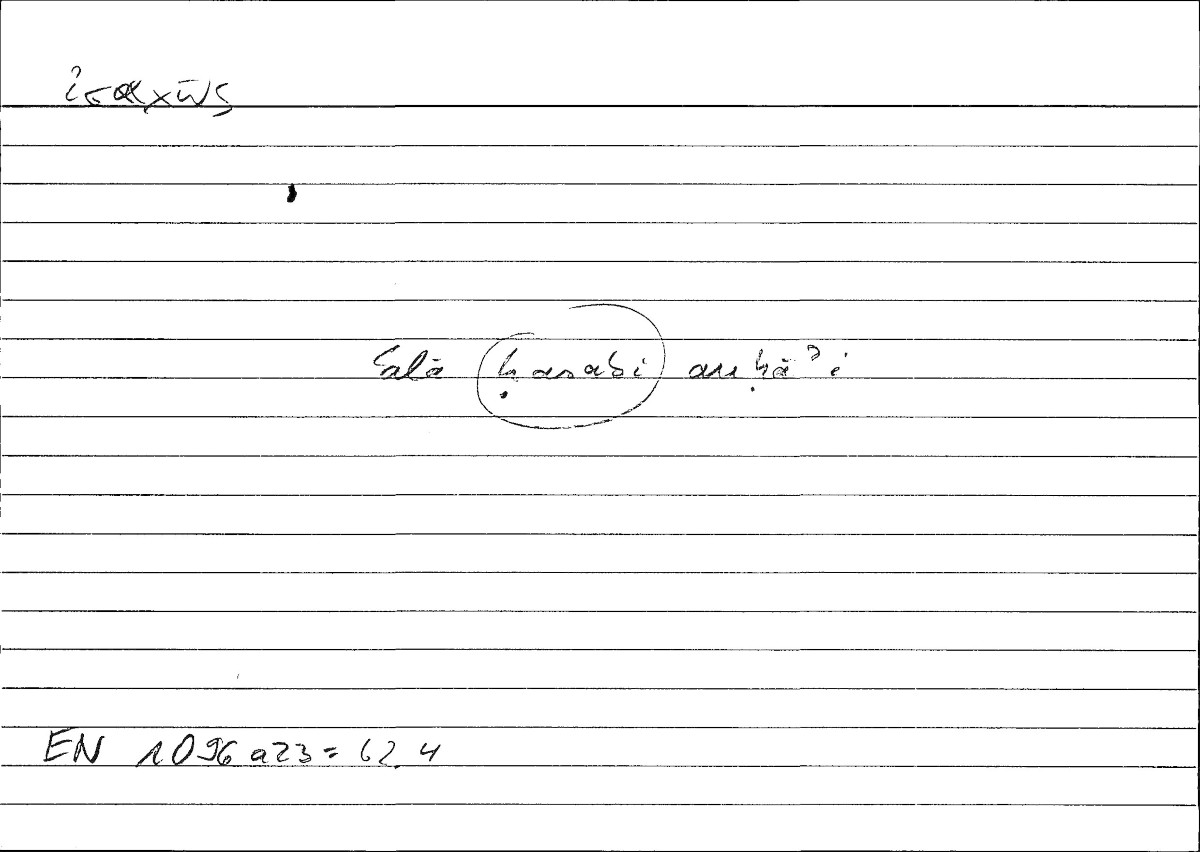 ἰσαχῶς
ʿalā ḥasabi anḥāʾi
EN 1096a23 = 62.4